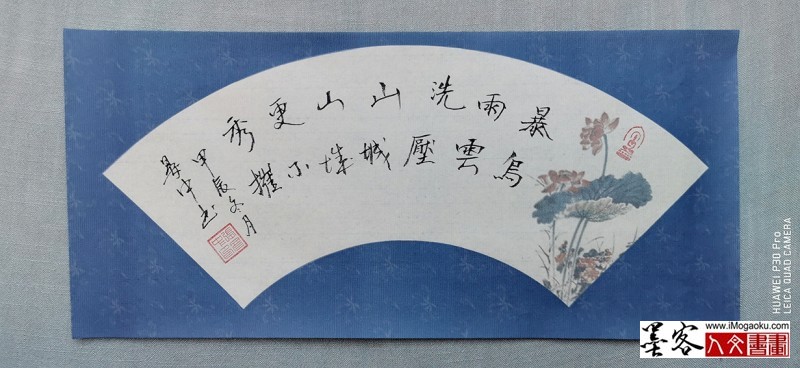 暴雨洗山山更秀
烏雲壓城城不摧
甲辰冬月
中书
HUAWEI P30 Pro
LEICA QUAD CAMERA
www.iMogaoku.com
墨客人文書畫